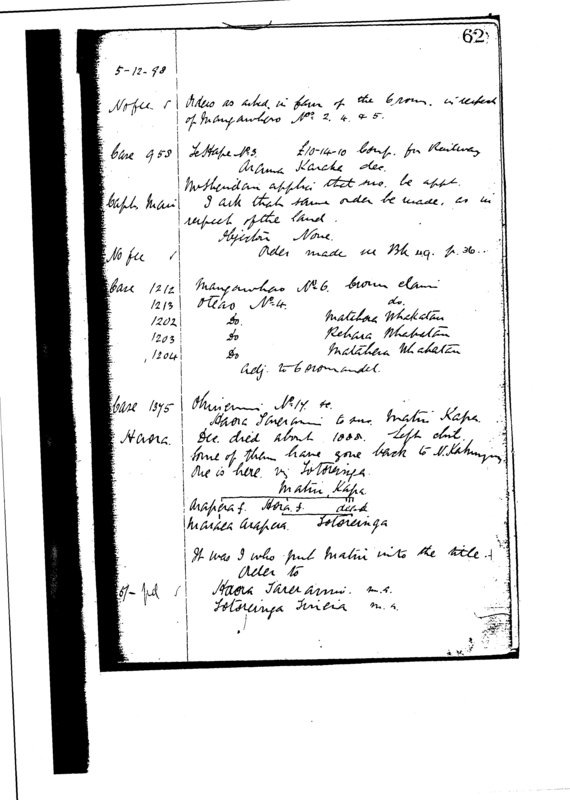 62
5-12-98
No fee Orders as asked in favor of the Crown, in respect
of Mangawhero Nos 2. 4. & 5.
Case 958 Te Hape No 3. £10-14-10 Comp. for Railway
Arama Karaka dec.
Mr Sheridan applies that suc. be appt.
Captn Mair I ask that same order be made, as in
respect of the land.
Objectors None.
No fee Order made in Bk 29. p. 36.
Case 1212 Mangawhero No 6. Crown claim
1213 Otiao No 4. do.
1202 Do Matahera Whakatau
1203 Do Rehara Whakatau
1204 Do Matahera Whakatau
adj. to Coromandel.
Case 1375 No 17.
Haora Haora Tareranui to suc. Matiu Kapa.
Dec. died about Left chil.
Some of them have gone back to N. Kahungunu
One is here viz Totoreinga.
Matiu Kapa
Arapera f. Hora f. dead
Maraea Arapera Totoreinga
It was I who put Matiu into the title.
Order to
6/- pd Haora Tareranui. m.a.
Totoreinga m.a.